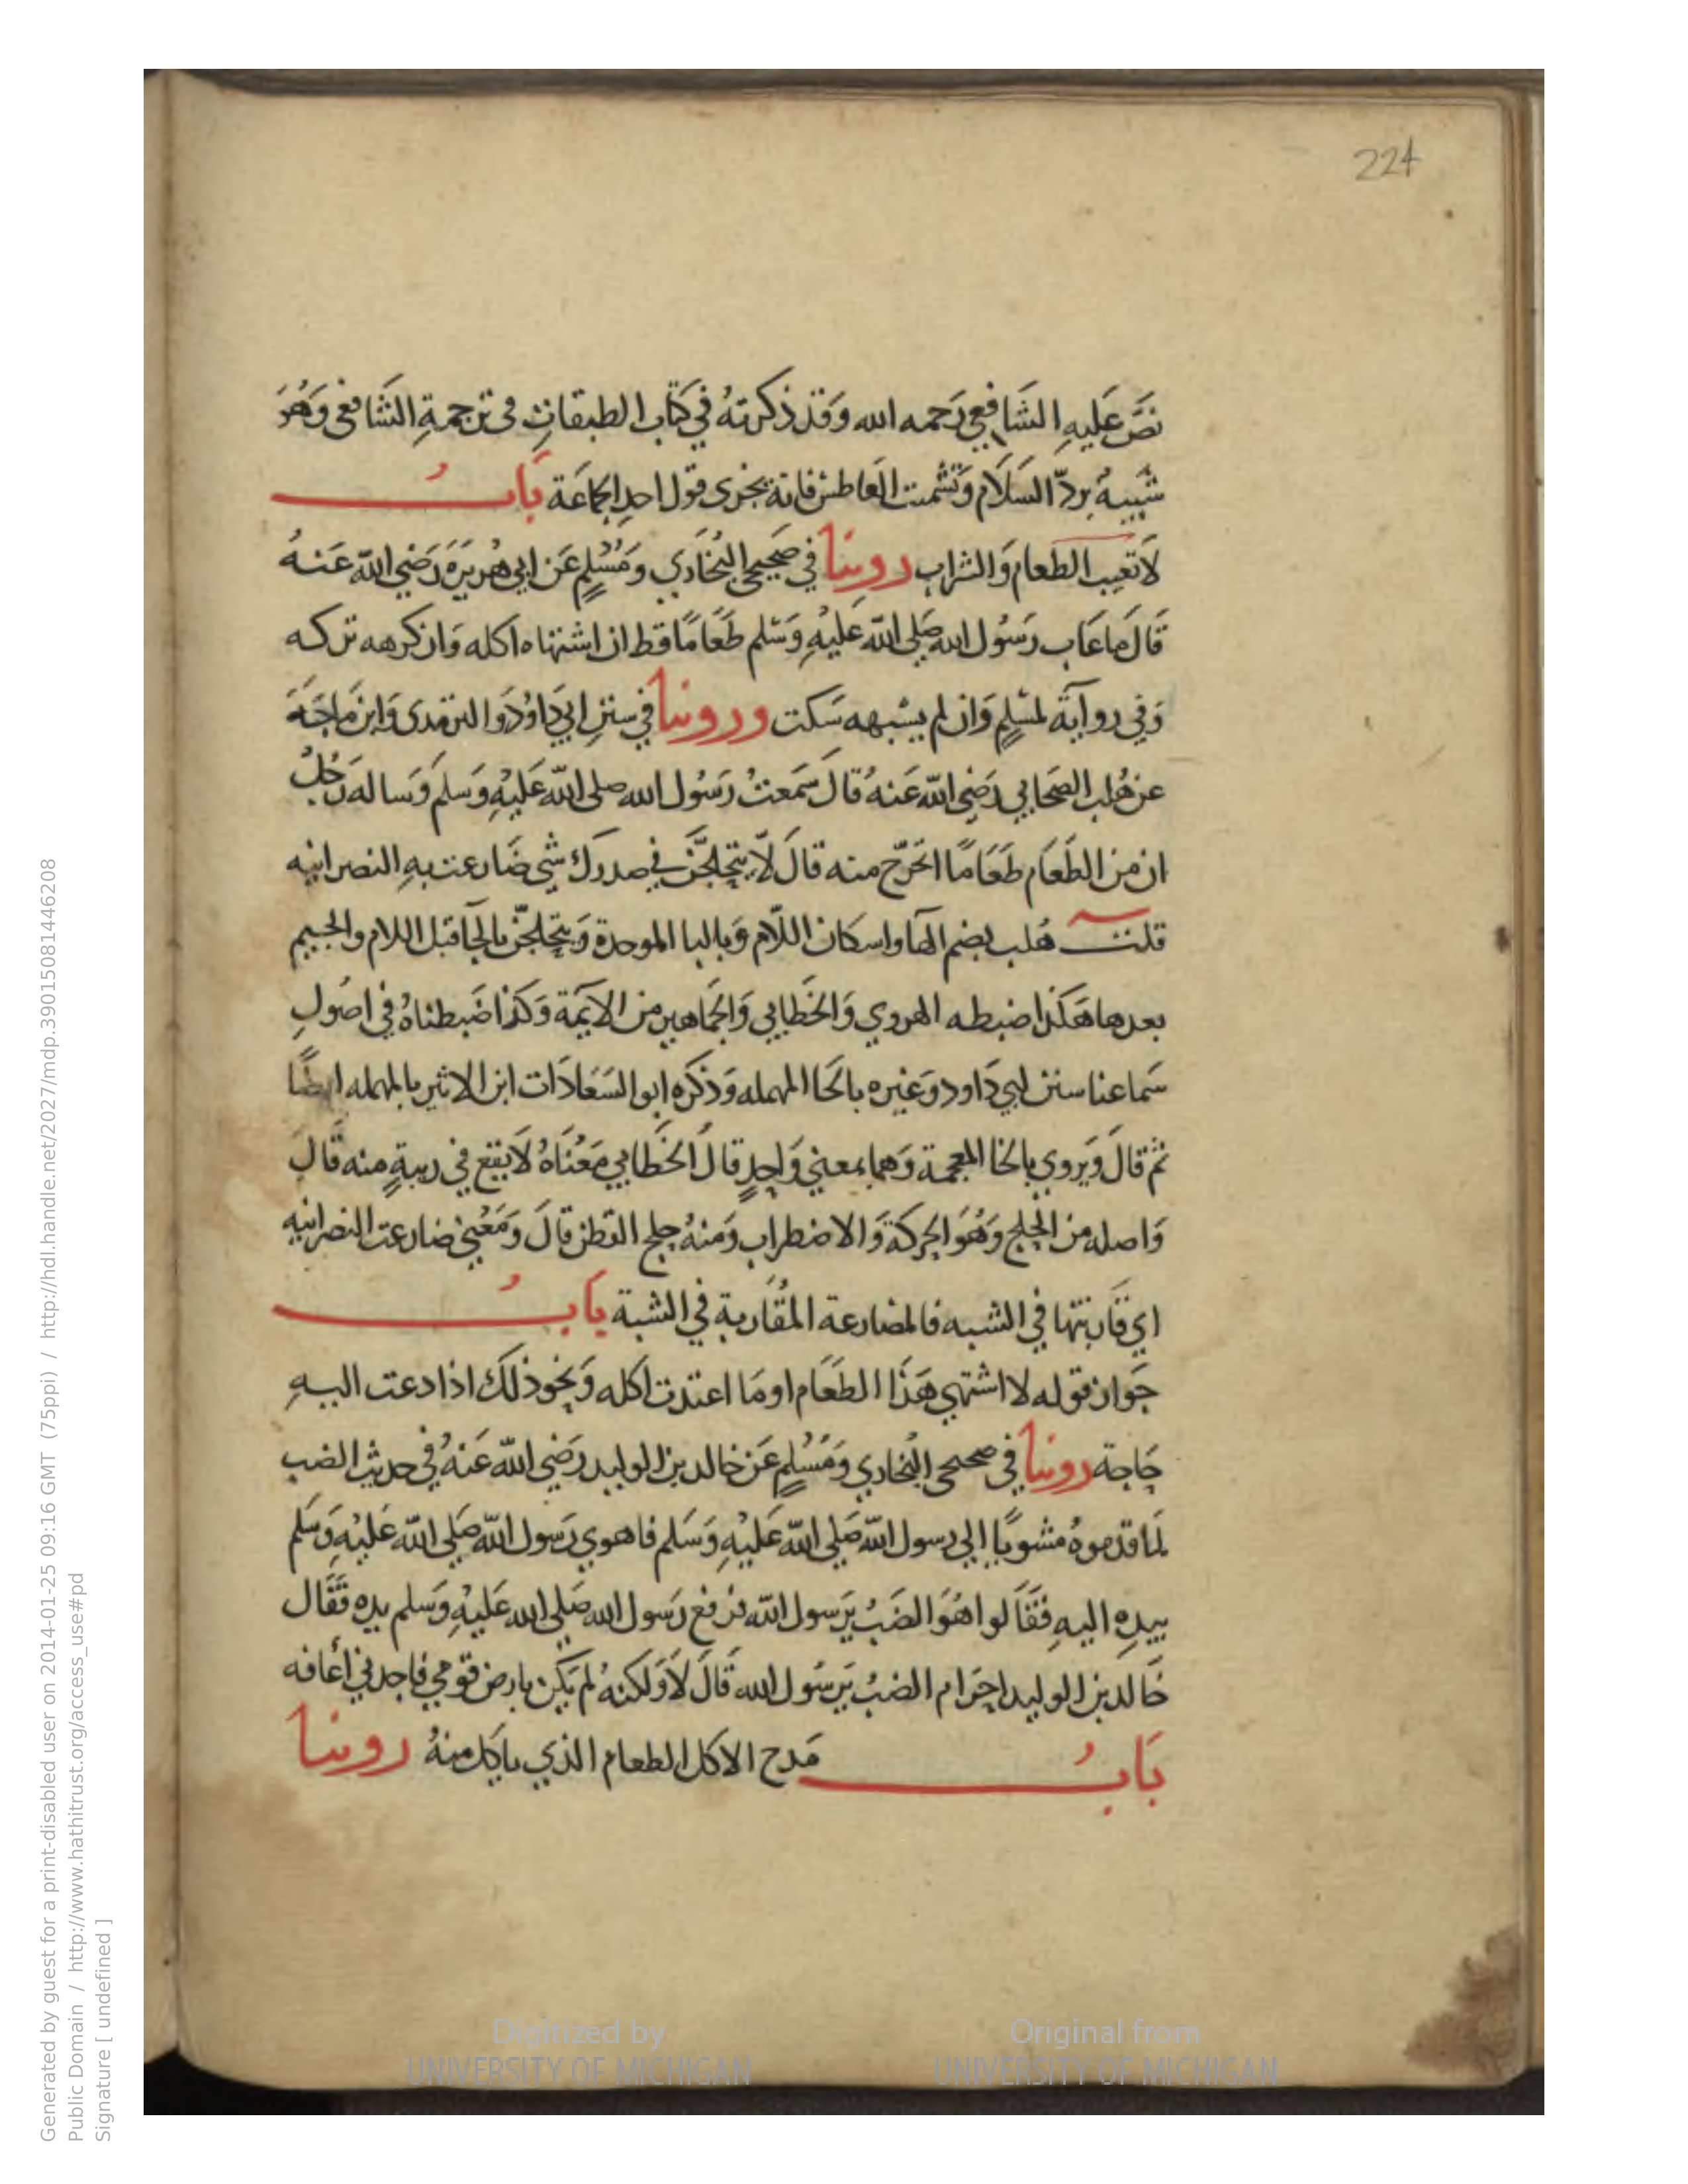 224
نَصَّ عَلَيهِ الشَافِعي رَحمه الله وَقَد ذكرتهُ في كتَاب الطبقاتِ فى ترجمةِ الشَافعى وَهُوَ
شَبيهٌ بردّ السَلَام وَتشْميت العَاطس فانهَ يجزى قول احدِ الجاعَة بَابُ
لَا تعيب الطعام وَالشراب روينا في صَحيحي البُخَاري وَمُسْلمٍ عَن ابي هُريرَة رَضي اللّه عَنهُ
قَالَ ما عَاب رَسُول الله صَلي اللّه عَليْهِ وَسَلم طَعَامًا قط ان اشتهاه اكله وَان كرهه تركه
وَفي روايَة لمسْلمٍ وَان لم يشبهه سَكت وروينا في سننِ ابي دَاوُدَ والترمدى وَابن مَاجَة
عن هُلب الصَحَابي رَضي اللّه عَنهُ قَالَ سَمعتُ رَسُول الله صلى اللّه عَليْهِ وَسَلم وَساله رَجُلٌ
ان من الطَعَام طَعَامًا اتحَرّج منه قالَ لَا يتحلجَنّ في صدرك شي ضَارعت بهِ النصرانيه
قلت هُلب بضم الهَا واسكان اللّام وَبالبا الموحدة وَيتحلجنّ بالحَا قبل اللام والجيم
بعدها هَكذا ضبطه الهروي وَالخطابي وَالجَماهير من الايَمة وَكذا ضَبطناهُ في اصُولِ
سَماعنا سنن ابي دَاود وَغيره بالحَا المهمله وَذكره ابو السَعَادَات ابن الاثير بالمهمله ايضًا
ثم قالَ وَيروي بالخا المعجمة وَهما بمعني وَاحدٍ قالَ الخَطابي مَعْنَاهُ لَا يقع في ريبةٍ منه قَالَ
وَاصله من الحلج وَهُوَ الحركَة وَالاضطراب وَمنهُ حلج القطن قالَ وَمَعْني ضارعت النصرانيه
اي قَاربتها في الشبه فالمضارعة المُقَاربة في الشبة بَابُ
جَواز قوله لا اشتهي هَذَا الطعَام او مَا اعتدت اكله وَنحو ذلَك اذا دعت اليهِ
حَاجة روينا في صحيحى البُخاري وَمُسْلمٍ عَن خالد بن الوليد رَضي اللّه عَنهُ في حديث الضب
لمَا قدموهُ مشويًا الي رسول اللّه صَلي اللّه عَليْهِ وَسَلم فاهوي رَسول اللّه صَلي اللّه عَليْهِ وَسَلم
بيدِه اليهِ فقَالوا هُوَ الضَبُ يرَسول اللّه فرفع رَسول الله صَلي الله عَليْهِ وَسَلم يده فَقَال
خَالد بن الوليد احَرَام الضبُ يَرسُول الله قَالَ لَا وَلكنهُ لم يَكن بارض قومي فاجدني أعَافه
بَابُ مَدح الاكل الطعام الذي ياكل منهُ روينا
Generated by guest for a print-disabled user on 2014-01-25 09:16 GMT (75ppi) / http://hdl.handle.net/2027/mdp.39015081446208
Public Domain / http://www.hathitrust.org/access_use#pd
Signature [ undefined ]
Digitized by
UNIVERSITY OF MICHIGAN
Original from
UNIVERSITY OF MICHIGAN